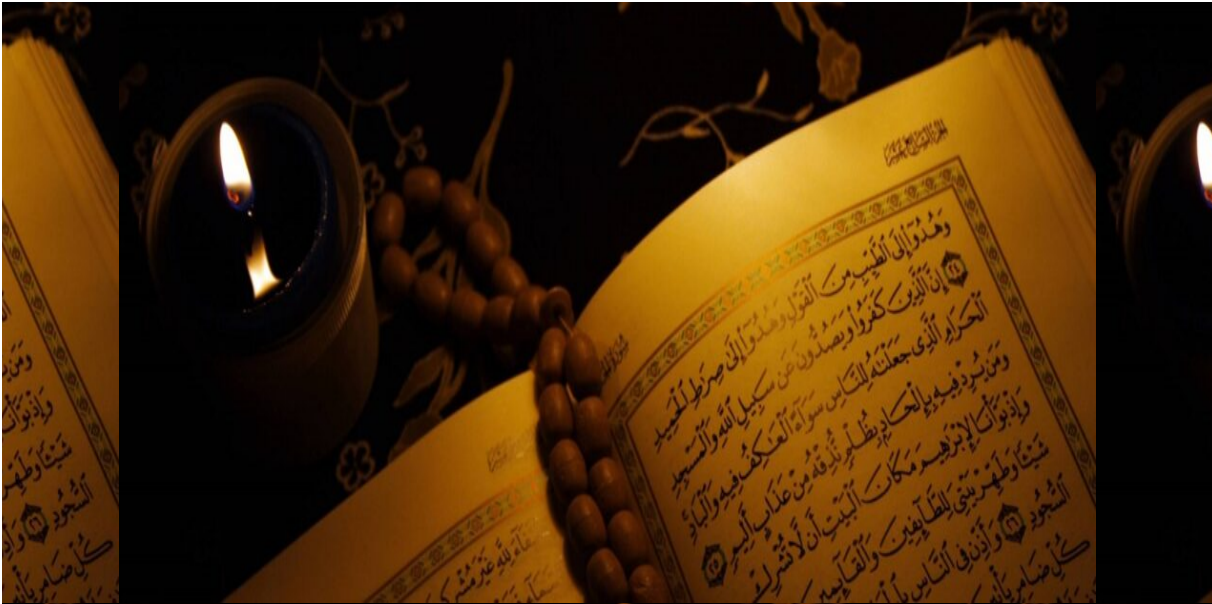 الجزء السابع عشر
وَهُدُوٓا۟ إِلَى ٱلطَّيِّبِ مِنَ ٱلْقَوْلِ وَهُدُوٓا۟ إِلَىٰ صِرَٰطِ ٱلْحَمِيدِ
٢٤ إِنَّ ٱلَّذِينَ كَفَرُوا۟ وَيَصُدُّونَ عَن سَبِيلِ ٱللَّهِ وَٱلْمَسْجِدِ
ٱلْحَرَامِ ٱلَّذِى جَعَلْنَٰهُ لِلنَّاسِ سَوَآءً ٱلْعَٰكِفُ فِيهِ وَٱلْبَادِ
وَمَن يُرِدْ فِيهِ بِإِلْحَادٍۭ بِظُلْمٍ نُّذِقْهُ مِنْ عَذَابٍ أَلِيمٍ ٢٥
وَإِذْ بَوَّأْنَا لِإِبْرَٰهِيمَ مَكَانَ ٱلْبَيْتِ أَن لَّا تُشْرِكْ
شَيْـًٔا وَطَهِّرْ بَيْتِىَ لِلطَّآئِفِينَ وَٱلْقَآئِمِينَ
ٱلسُّجُودِ ٢٦ وَأَذِّن فِى ٱلنَّاسِ
كُلِّ ضَامِرٍ يَأْتِينَ
لِلَّهِ غَيْرَ